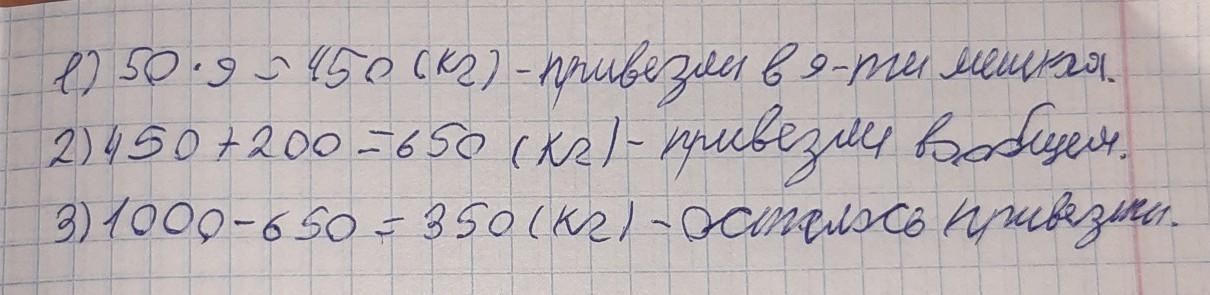 1) 50 · 9 = 450 (кг) - привезли в 9-ти мешках.
2) 450 + 200 = 650 (кг) - привезли вообщем.
3) 1000 - 650 = 350 (кг) - осталось привезти.